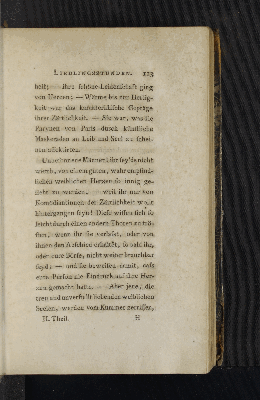 LIEBLINGSSTUNDEN. 113
heit; — ihre schöne Leidenschaft ging
von Herzen; — Wärme bis zur Heftig-
keit war das karakteristische Gepräge
ihrer Zärtlichkeit. — Sie war, was die
Phrynen von Paris durch künstliche
Maskeraden an Leib und Seel zu schei-
nen affektirten.
Unbesonnene Männer! ihr seyd nicht
werth, von einem guten, wahrempfind-
lichen weiblichen Herzen so innig ge-
liebt zu werden, — weil ihr nur von
Komödiantinnen der Zärtlichkeit wollt
hintergangen seyn! Diese wissen sich so
leicht durch einen andern Thoren zu trö-
sten, wenn ihr sie verlasst, oder von
ihnen den Abschied erhaltet, so bald ihr,
oder eure Börse, nicht weiter brauchbar
seyd; — und sie beweisen damit, dass
eure Person nie Eindruck auf ihre Her-
zen gemacht hatte. — Aber jene, die
treu und unverfälscht liebenden weiblichen
Seelen, werden vom Kummer zerrissen,
II. Theil. H